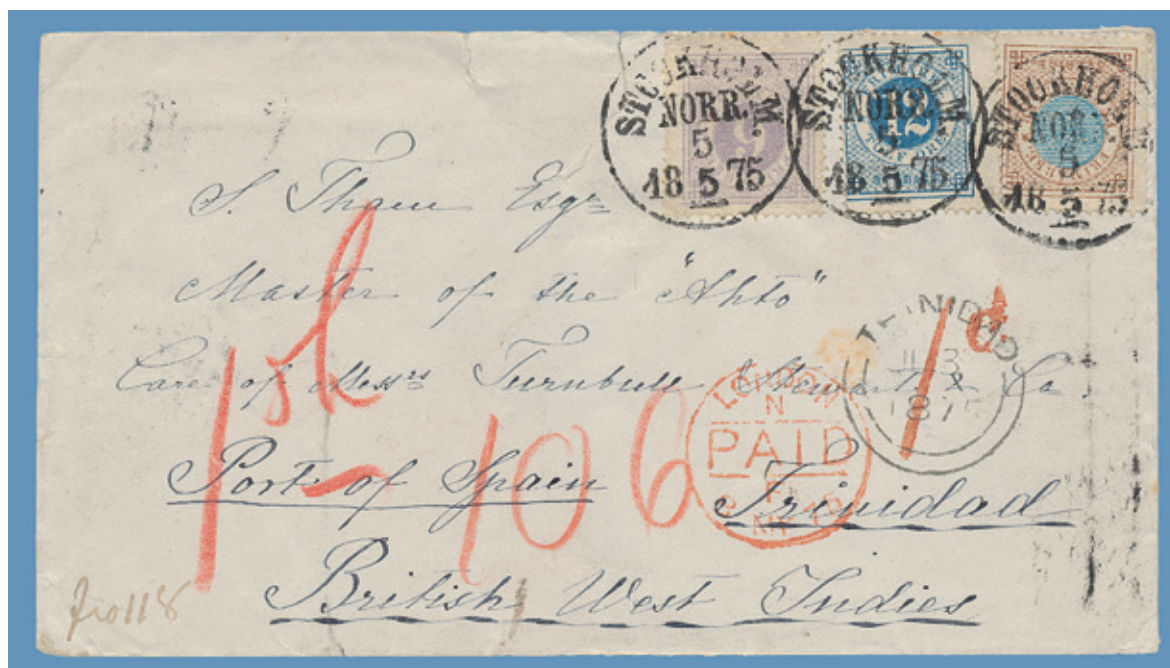 STOCKHOLM
NORR.
5
18 5 75
9
STOCKHOLM
NORR.
5
18 5 75
12
TOLF ÖRE
STOCKHOLM
NORR.
5
18 5 75
S. Tham Esqre
Master of the "Ahto"
Care of Messrs Turnbull Stewart & Co.
Port of Spain Trinidad
British West Indies
TRINIDAD
1875
1d
LONDON
N
PAID
MY 75
106